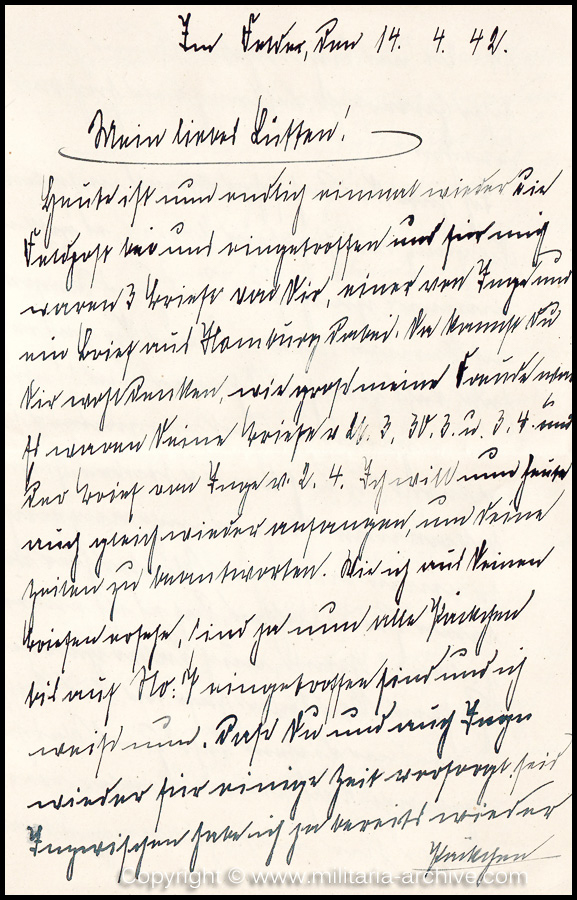 Im Felde, den 14. 4. 42.
Mein liebes
Heute ist nun endlich einmal wieder die
Feldpost bei uns eingetroffen und für mich
waren 3 Briefe von Dir, einer von Inge und
ein Brief aus Hamburg dabei. Da kannst Du
Dir wohl denken, wie groß meine Freude war.
Es waren Deine Briefe v. 3, 30. 3. u. 3. 4. und
der Brief von Inge v. 2. 4. Ich will nun heute
auch gleich wieder anfangen, um Deine
Zeilen zu beantworten. Wie ich aus Deinen
Briefen ersehe, sind ja nun alle Päckchen
bis auf No. 7 eingetroffen sind und ich
weiß nun, daß Du und auch Inge
wieder für einige Zeit versorgt seid
Inzwischen habe ich ja bereits wieder
Päckchen
Copyright © www.militaria-archive.com